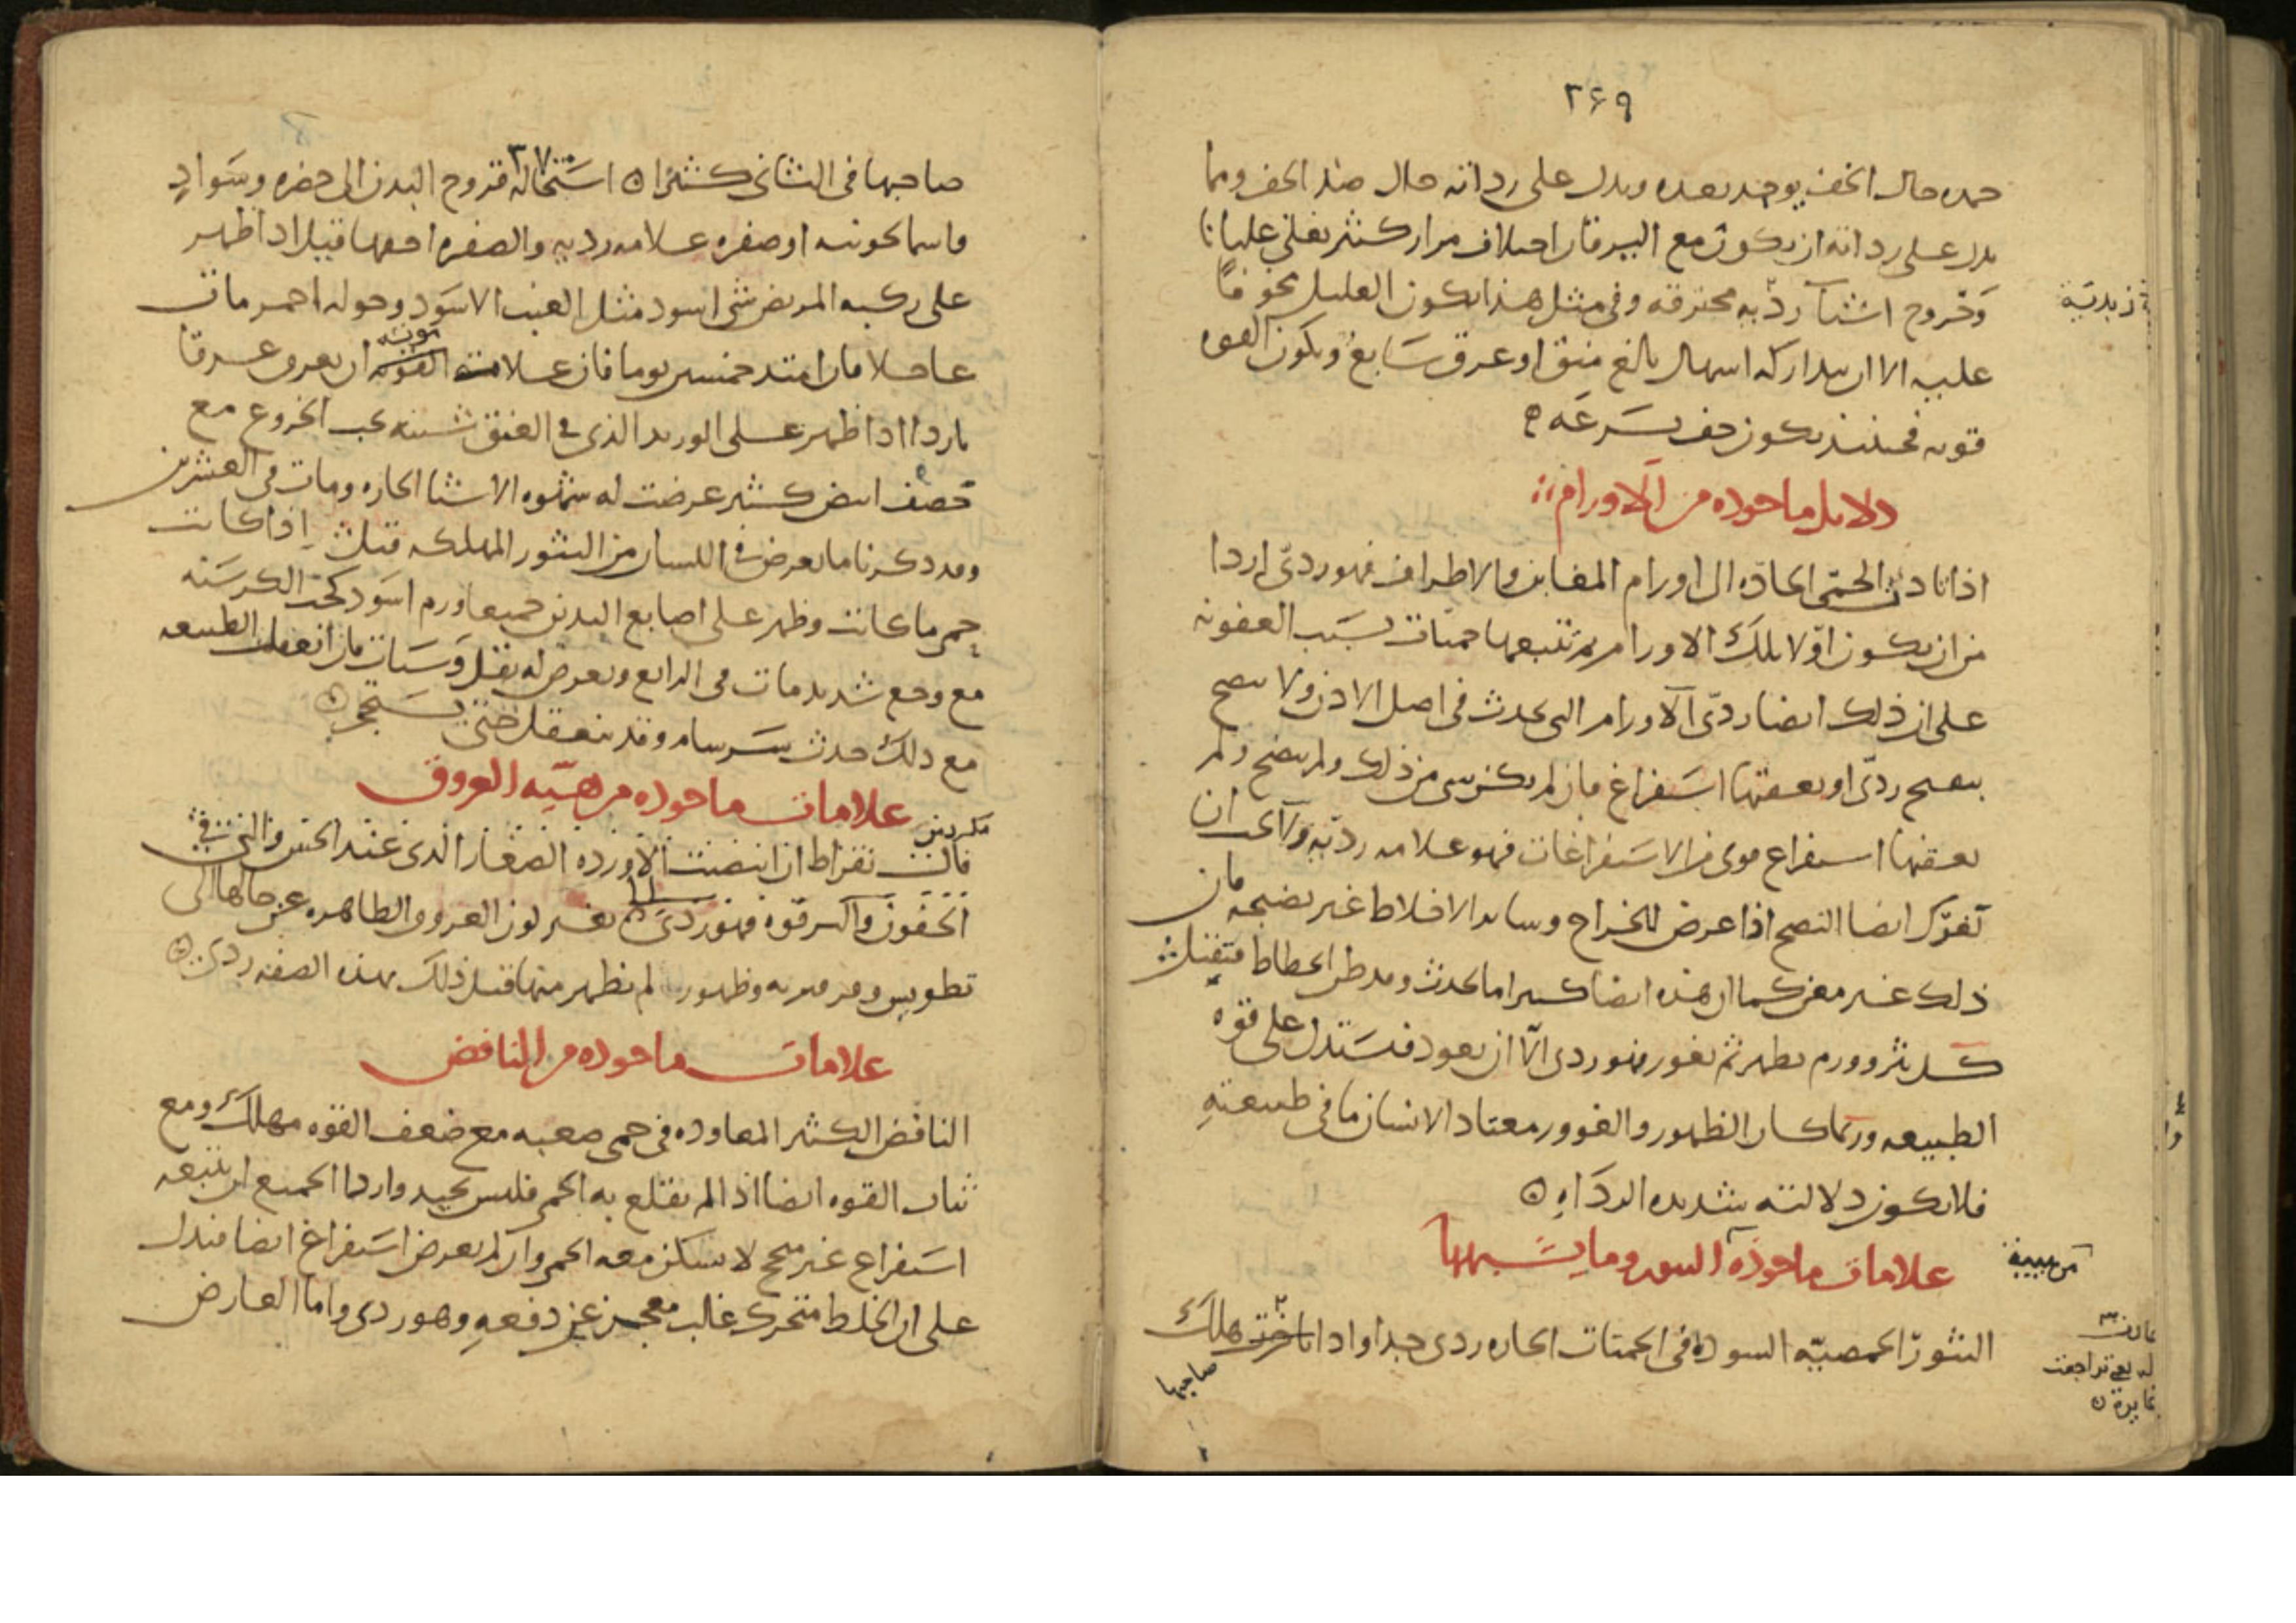 ٢٤٩
حمده حال الخف يوجد بعده ويدل على رداته حال ضد الخف ومما
يدل على رداته ان يكون مع اليرقان اختلاف مرار كثير يغلي غليانا
وخروج اشيا رديه محترقه وفي مثل هذا يكون العليل مخوفا
زبدية
عليه الا ان يتداركه اسهال بالغ منق او عرق سابغ ويكون القوه
قويه فحينئذ يكون خف بسرعه
دلايل ماخوذه من الاورام
اذا تادت الحمى الحاده الى اورام المغابن والاطراف فهو ردي اردا
من ان يكون اولا تلك الاورام ثم تتبعها حميات بسبب العفونه
على ان ذلك ايضا ردي الاورام التي تحدث في اصل الاذن ولا ينضج
بنضج ردي او يعقبها استفراغ فان لم يكن شي من ذلك ولم ينضج ولم
يعقبها استفراغ قوي من الاستفراغات فهو علامه رديه ولا يجب ان
تغرك ايضا النضج اذا عرض للخراج وساير الاخلاط غير نضيجه فان
ذلك غير مغن كما ان هذه ايضا كثيرا ما تحدث وقد ظن انحطاط فتقتل
كل بثر وورم يظهر ثم يغور فهو ردي الا ان يعود فيستدل على قوه
الطبيعه وربما كان الظهور والغوور معتاد الانسان ما في طبيعته
فلا يكون دلالته شديده الرداه
علامات ماخوذه البثور وما يشبهها
البثور الحمصيه السود في الحميات الحاده ردي جدا واذا هلك
صاحبها
صاحبها في الثاني كثيرا استحاله قروح البدن الى خضره وسواد
٢٧٠
فاسمانجونيه او صفره علامه رديه والصفره اخفها قيل اذا ظهر
على ركبه المريض شي اسود مثل العنب الاسود وحوله احمر مات
عاجلا فان امتد خمسين يوما فان علامة موته ان يعرق عرقا
باردا اذا ظهر على الوريد الذي في العنق شبيه بحب الخروع مع
حصف ابيض كثير عرضت له شهوه الاشيا الحاره ومات في العشرين
وقد ذكرنا ما يعرض في اللسان من البثور المهلكه قبل اذا كانت
حمى ما كانت وظهر على اصابع اليدين جميعا ورم اسود كحب الكرسنه
مع وجع شديد مات في الرابع ويعرض له ثقل وسبات فان انعقلت الطبيعه
مع ذلك حدث سرسام وقد ينعقل حتى يستحجر
علامات ماخوذه من هيه العروق
قال بقراط ان ابيضت الاورده الصغار الذي عند الجبين والتي في
الجفون والترقوه فهو ردي تغير لون العروق الظاهره عن حالها الى
تطويس وفرفيريه وظهور لم تظهر منها قبل ذلك بهذه الصفه ردي
علامات ماخوذه من النافض
النافض الكثير المعاوده في حمى صعبه مع ضعف القوه مهلك ومع
ثبات القوه ايضا اذا لم يقلع به الحمى فليس بجيد واردا الجميع ان يتبعه
استفراغ غير منجح لا يسكن معه الحمى وان لم يعرض استفراغ ايضا فيدل
على ان الخلط متحرك غالب معجز عن دفعه وهو ردي واما العارض